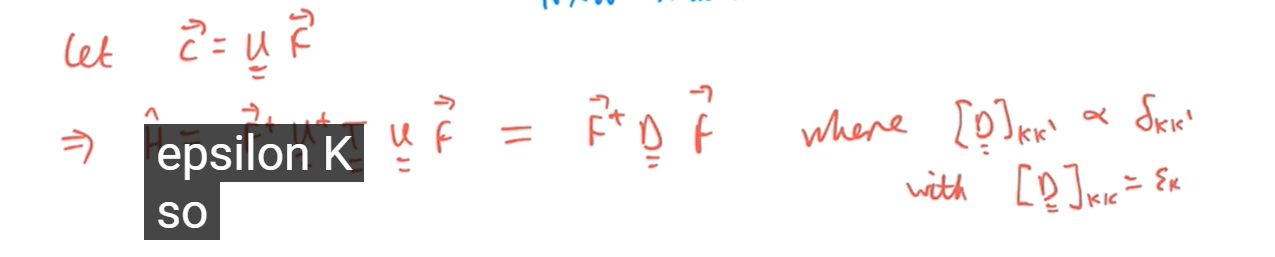 let c⃗ = U̳ F⃗
⇒ Ĥ = F⃗† U̳† T̳ U̳ F⃗ = F⃗† D̳ F⃗ where [D̳]KK' ∝ δKK'
with [D̳]KK = εK
epsilon K
so